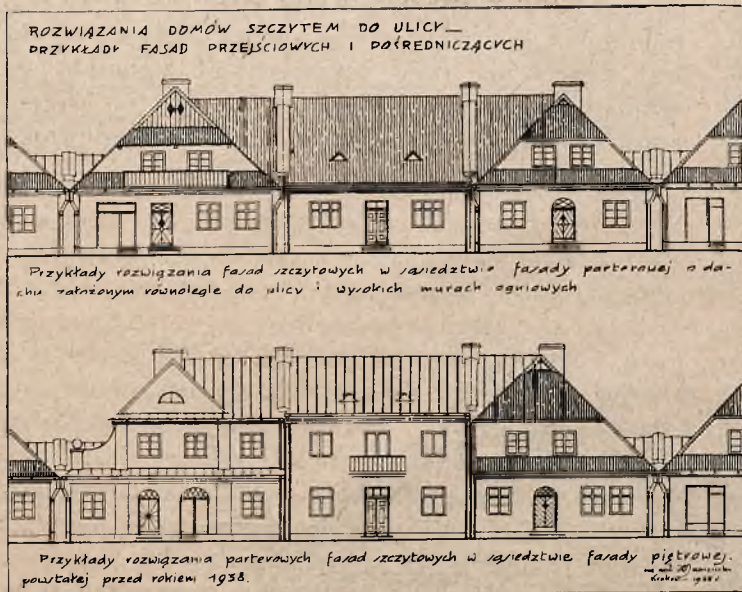 ROZWIĄZANIA DOMÓW SZCZYTEM DO ULICY_
PRZYKŁADY FASAD PRZEJŚCIOWYCH I POŚREDNICZĄCYCH
Przykłady rozwiązania fasad szczytowych w sąsiedztwie fasady parterowej o da-
chu założonym równolegle do ulicy i wysokich murach ogniowych
Przykłady rozwiązania parterowych fasad szczytowych w sąsiedztwie fasady piętrowej.
powstałej przed rokiem 1938.
Kraków - 1938